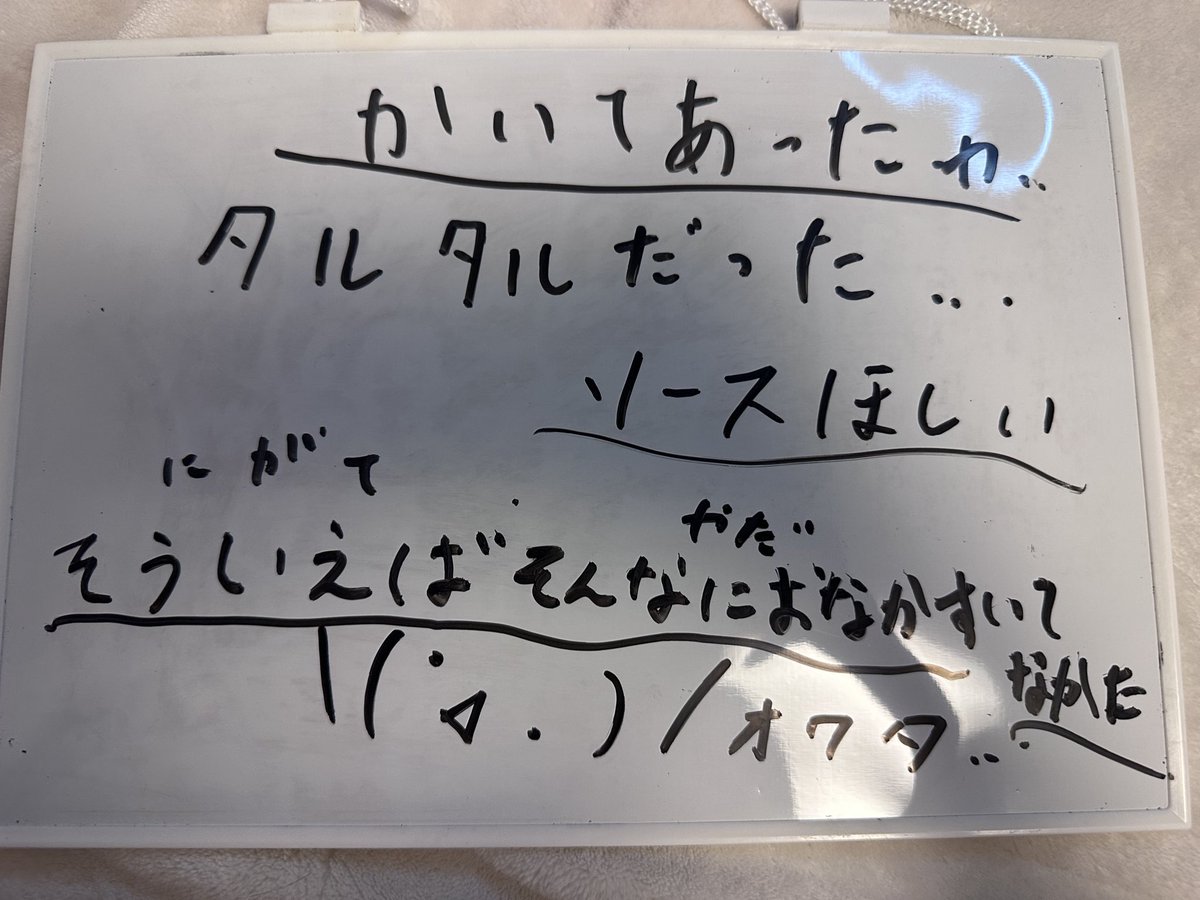 かいてあったわ..
タルタルだった...
ソースほしい
にがて
やだ
そういえばそんなにおなかすいて
なかた
\(゚⊿.)/オワタ..